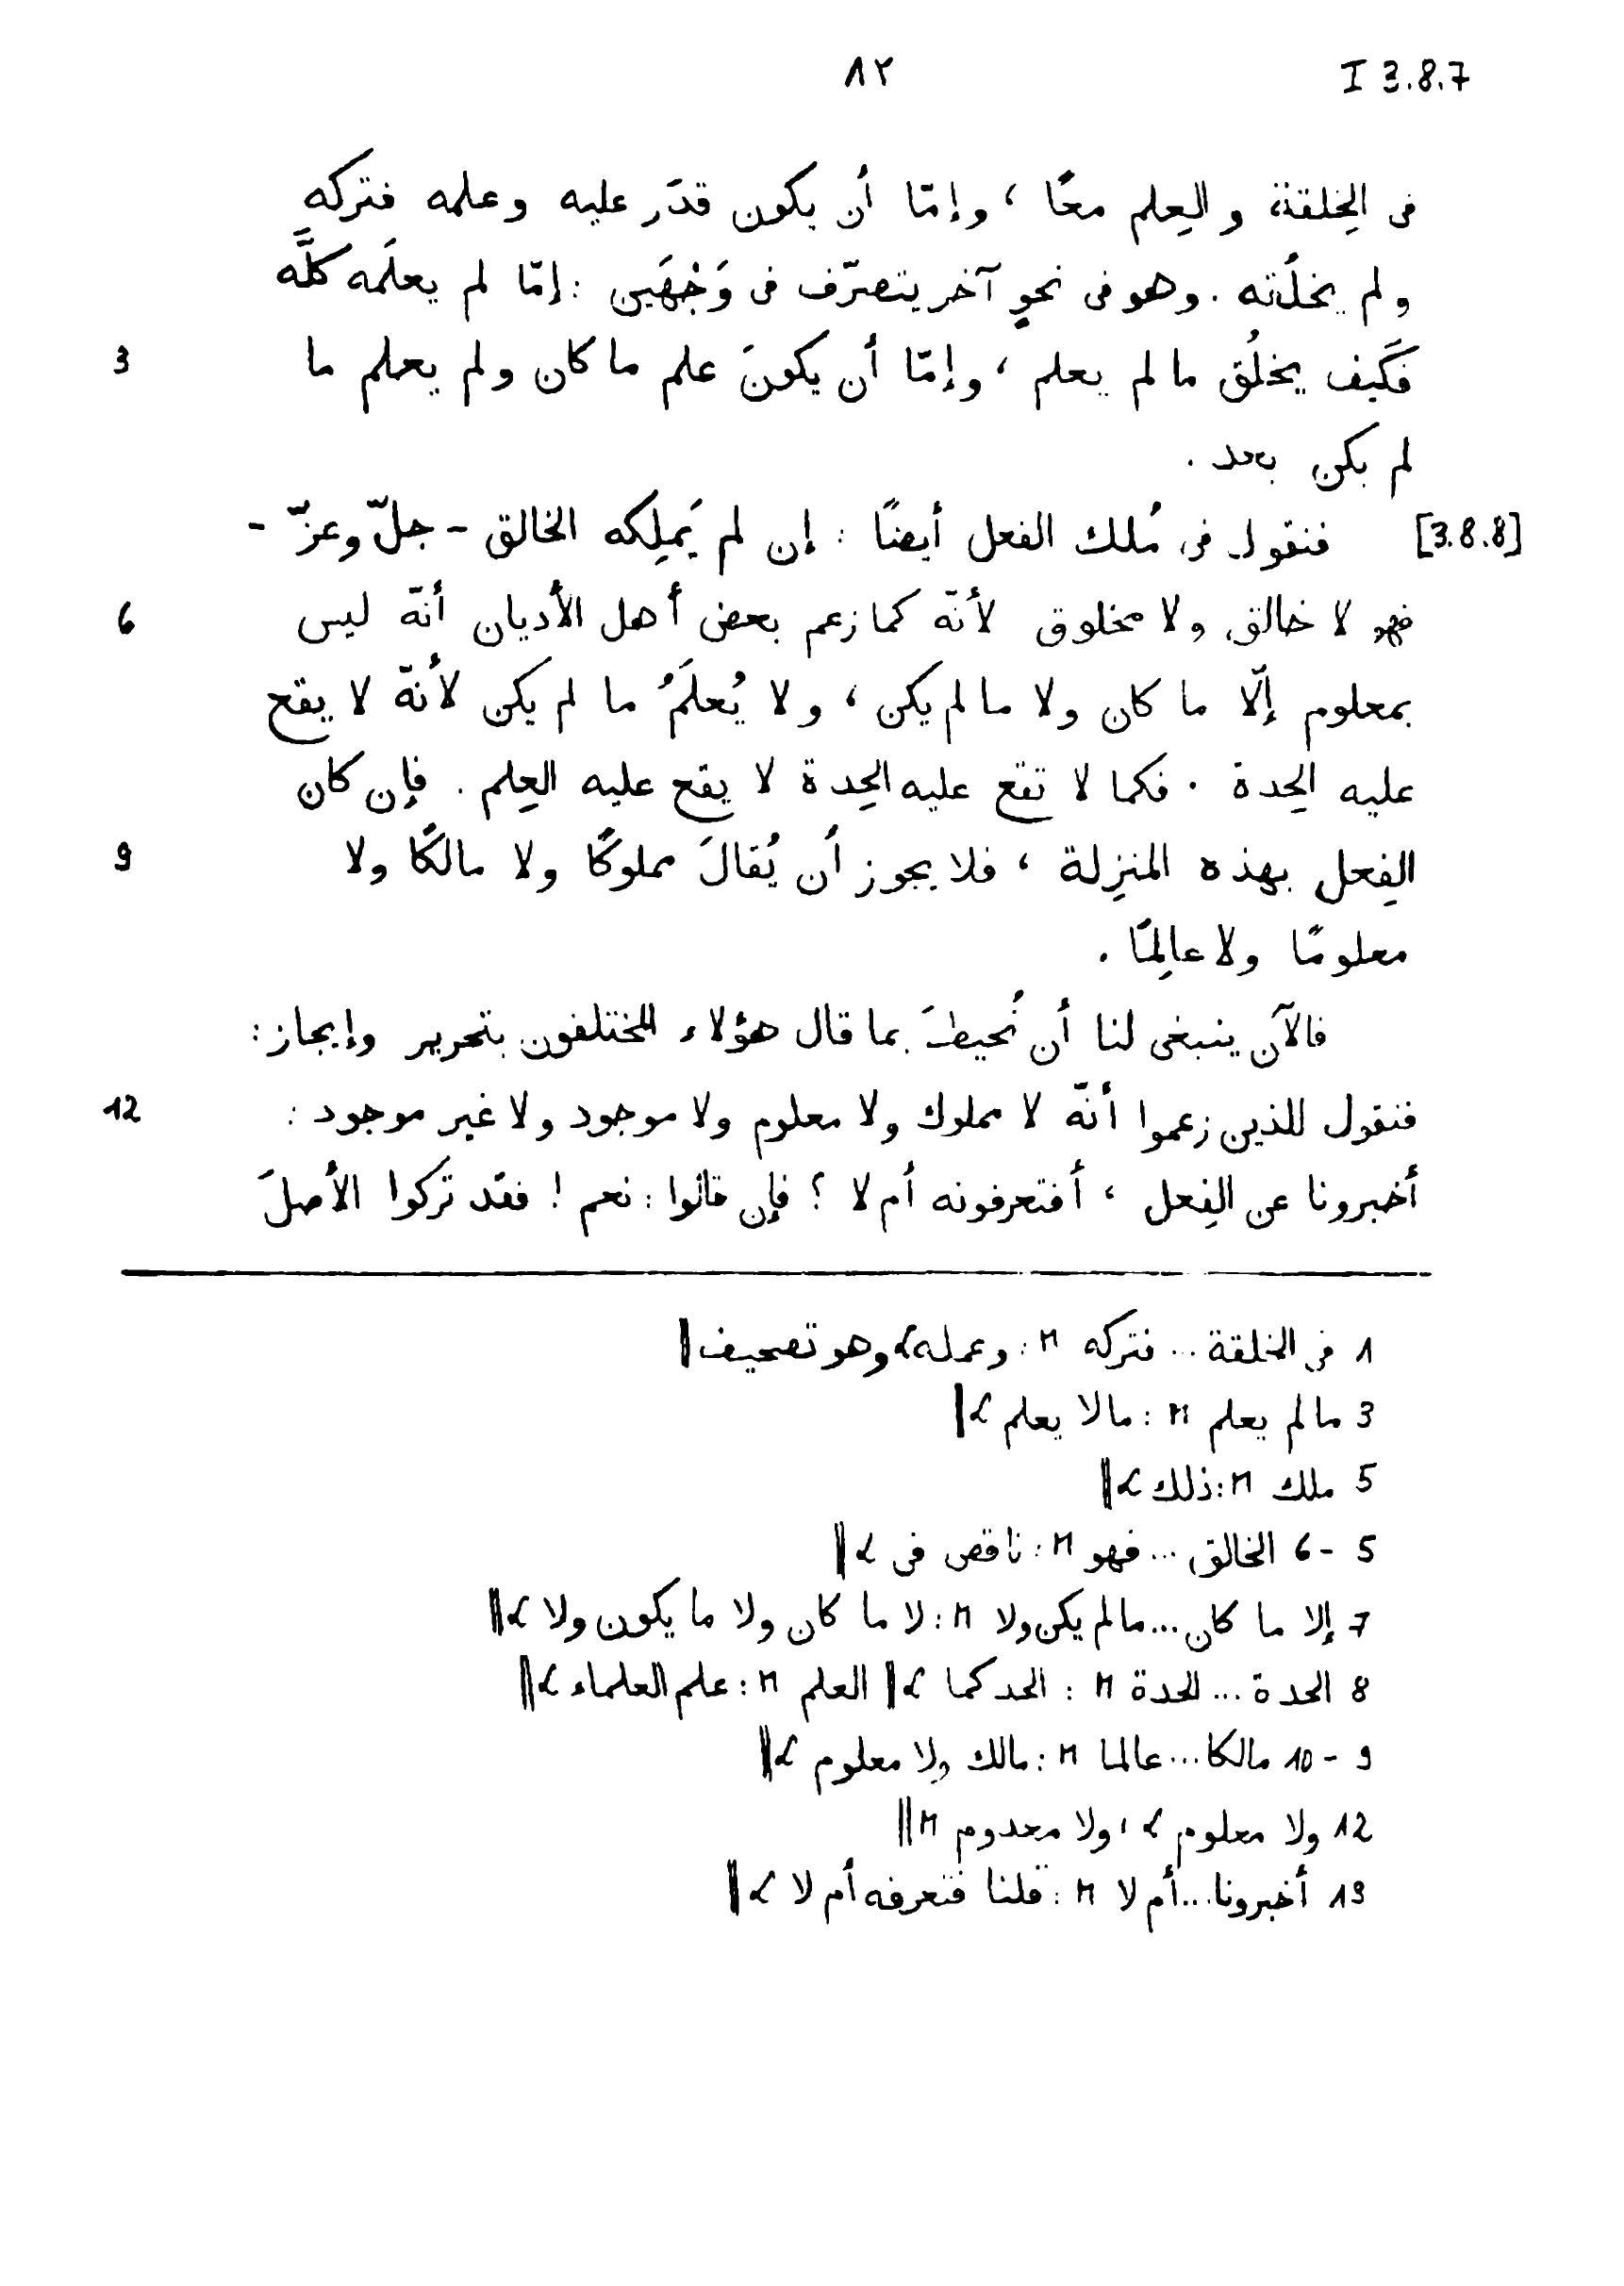 ٨٢ I 3.8.7
فى الخِلقة والعِلم معًا ، وإمّا أن يكون قدَر عليه وعلمه فتركه
ولم يخلُقه . وهو فى نحوٍ آخر يتصرّف فى وَجْهَين : إمّا لم يعلَمه كلَّه
فكَيف يخلُق ما لم يعلم ، وإمّا أن يكونَ علم ما كان ولم يعلم ما 3
لم يكن بعد .
[3.8.8] فنقول فى مُلك الفعل أيضًا : إن لم يَملِكه الخالق - جلّ وعزّ -
فهو لا خالق ولا مخلوق لأنّه كما زعم بعض أهل الأديان أنّه ليس 6
بمعلوم إلّا ما كان ولا ما لم يكن ، ولا يُعلَمُ ما لم يكن لأنّه لا يقع
عليه الحِدة . فكما لا تقع عليه الحِدة لا يقع عليه العِلم . فإن كان
الفِعل بهذه المنزِلة ، فلا يجوز أن يُقالَ مملوكًا ولا مالكًا ولا 9
معلومًا ولا عالِمًا .
فالآن ينبغى لنا أن نُحيطَ بما قال هؤلاء المختلفون بتحرير وإيجاز :
فنقول للذين زعموا أنّه لا مملوك ولا معلوم ولا موجود ولا غير موجود : 12
أخبرونا عن الفِعل ، أفتعرفونه أم لا ؟ فإن قالوا : نعم ! فقد تركوا الأصلَ
1 فى الخلقة ... فتركه M : وعمله L وهو تصحيف ||
3 ما لم يعلم M : ما لا يعلم L ||
5 ملك M : ذلك L ||
5 - 6 الخالق ... فهو M : ناقص فى L ||
7 إلا ما كان ... ما لم يكن ولا M : لا ما كان ولا ما يكون ولا L ||
8 الحدة ... الحدة M : الحد كما L || العلم M : علم العلماء L ||
9 - 10 مالكا ... عالما M : مالك ولا معلوم L ||
12 ولا معلوم L ، ولا معدوم M ||
13 أخبرونا ... أم لا M : قلنا فتعرفه أم لا L ||